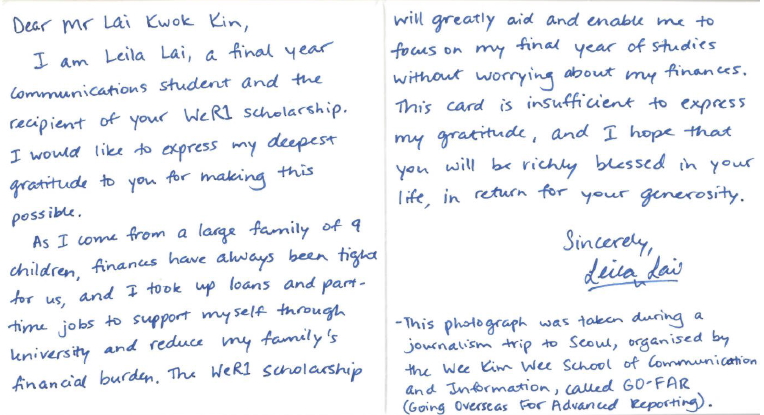 Dear Mr Lai Kwok Kin,
I am Leila Lai, a final year
communications student and the
recipient of your WeR1 scholarship.
I would like to express my deepest
gratitude to you for making this
possible.
As I come from a large family of 9
children, finances have always been tight
for us, and I took up loans and part-
time jobs to support myself through
university and reduce my family's
financial burden. The WeR1 scholarship
will greatly aid and enable me to
focus on my final year of studies
without worrying about my finances.
This card is insufficient to express
my gratitude, and I hope that
you will be richly blessed in your
life, in return for your generosity.
Sincerely,
Leila Lai
-This photograph was taken during a
journalism trip to Seoul, organised by
the Wee Kim Wee School of Communication
and Information, called GO-FAR
(Going Overseas For Advanced Reporting).